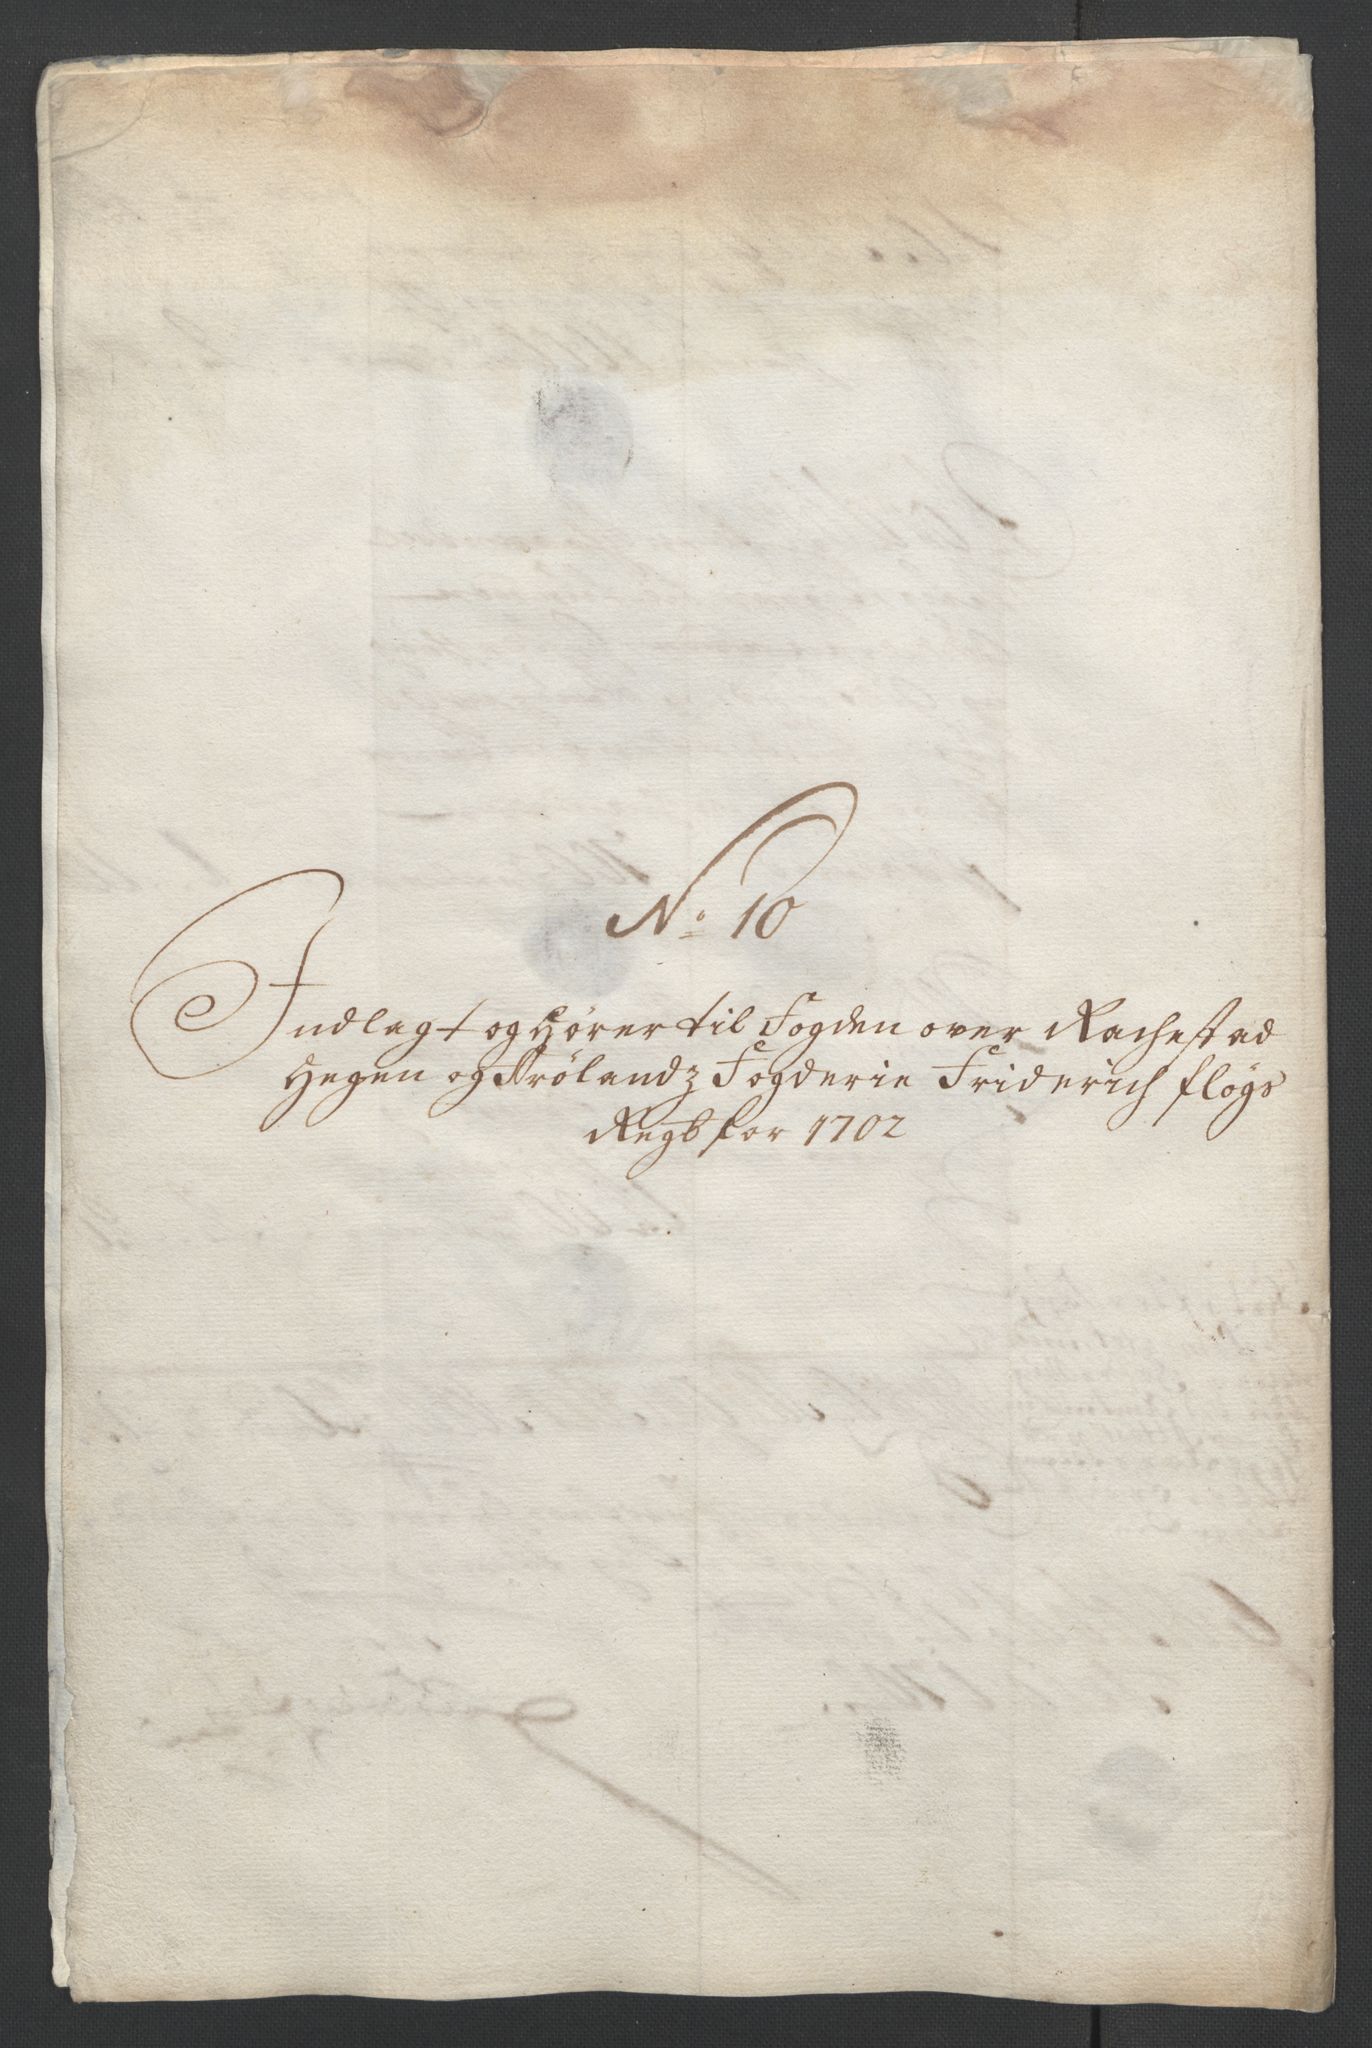 No 10
Indlagt og Hører til Fogden over Rachestad
Hegen og Frølandz Fogderie Friderich fløgs
Regb for 1702